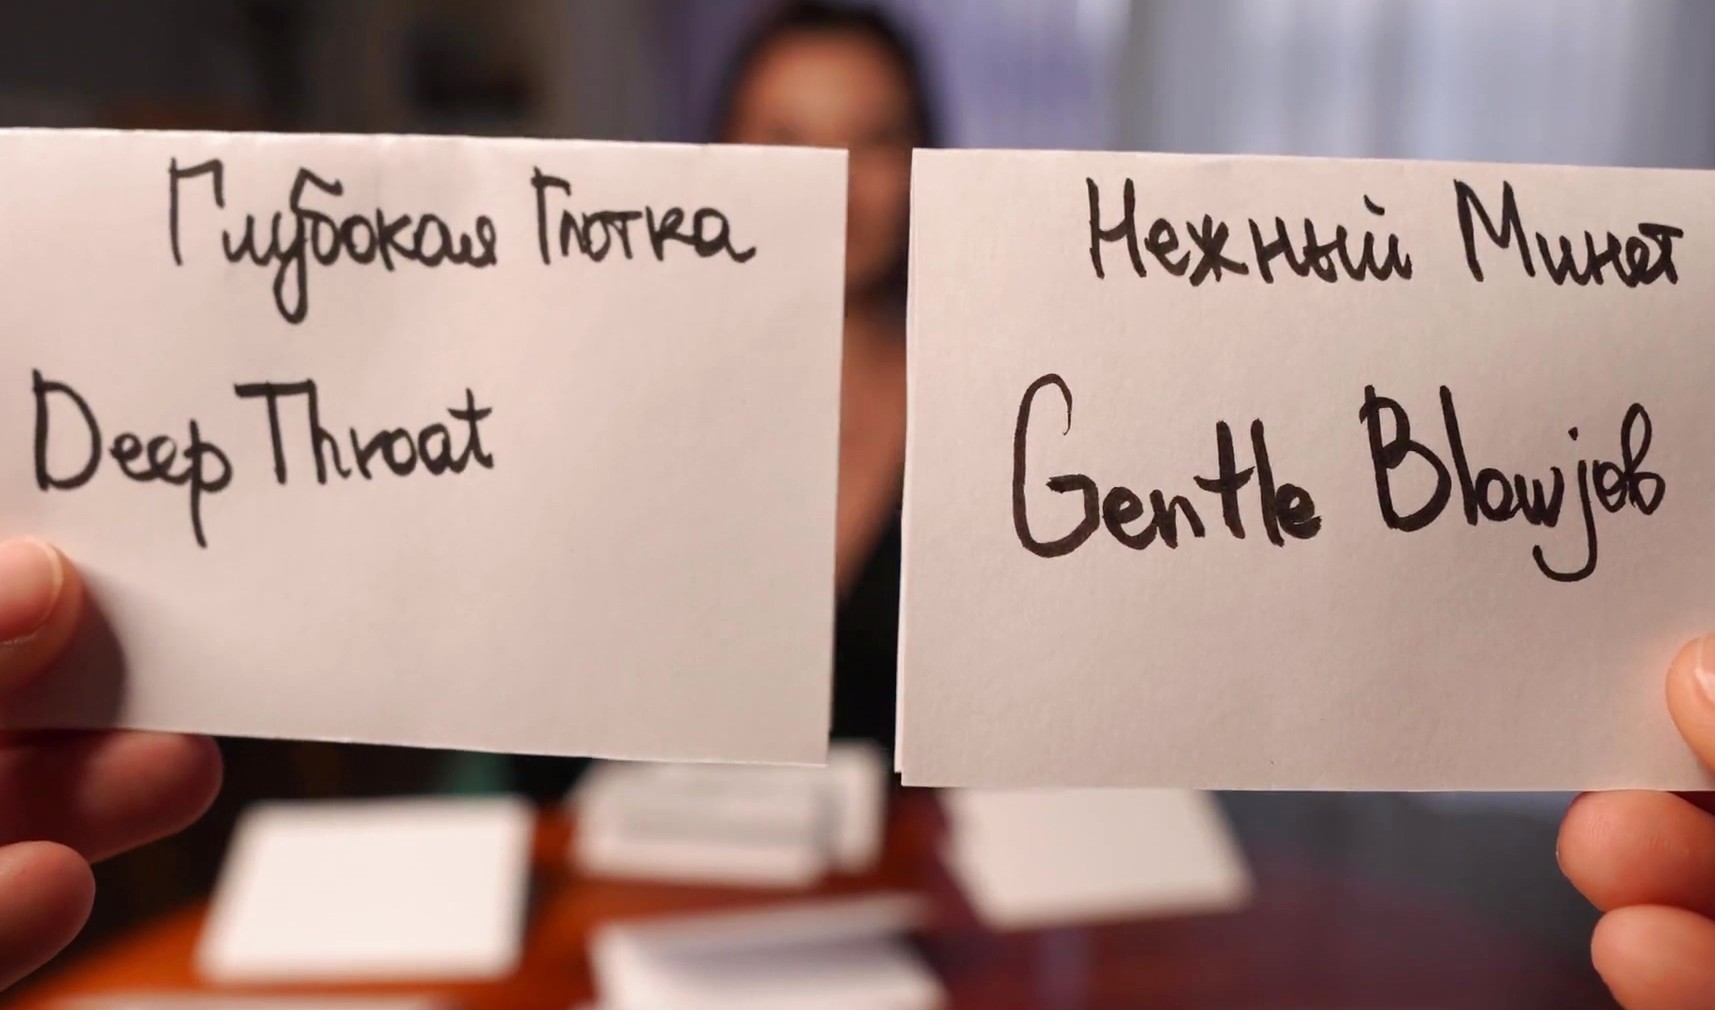 Глубокая Глотка
Deep Throat
Нежный Минет
Gentle Blowjob